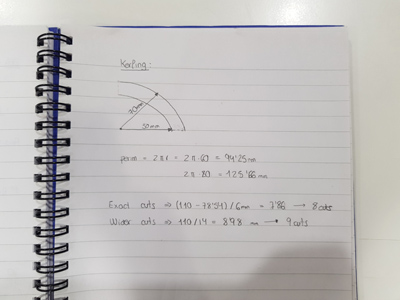 Kerfing:
70mm
50mm
perim = 2πr = 2π·60 = 94'25 mm
2π 80 = 125'66 mm
Exact cuts ⇒ (110 - 78'54) / 6mm = 7'86 → 8 cuts
Wider cuts ⇒ 110/14 = 8'98 mm → 9 cuts